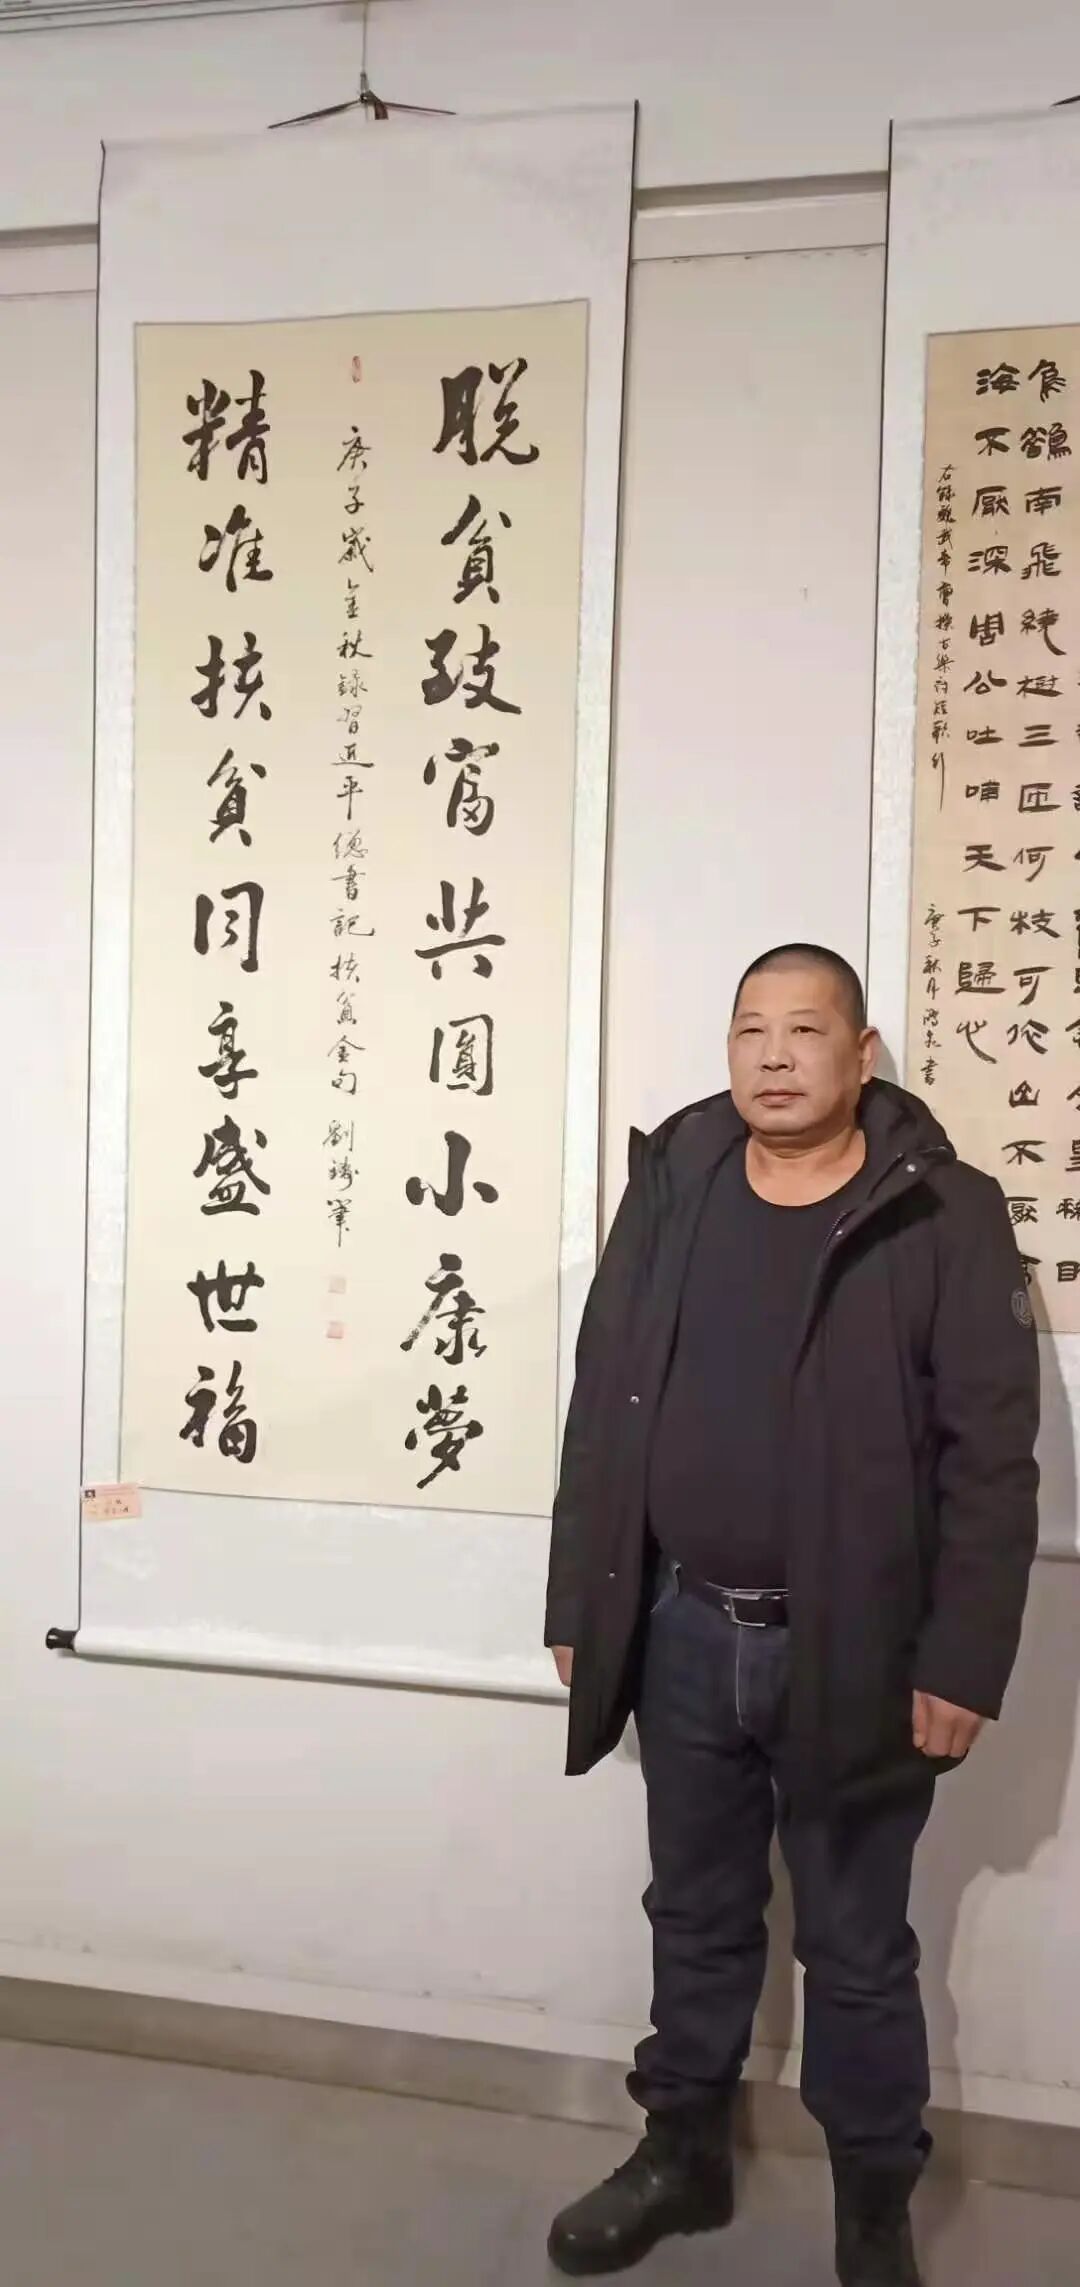 脱貧致富共圓小康夢
庚子歲金秋錄習近平總書記扶貧金句 劉 筆
精准扶貧同享盛世福
烏鵲南飛繞樹三匝何枝可依山不厭高
海不厭深周公吐哺天下歸心
右錄魏武帝曹操古樂府短歌行
庚子秋月 書